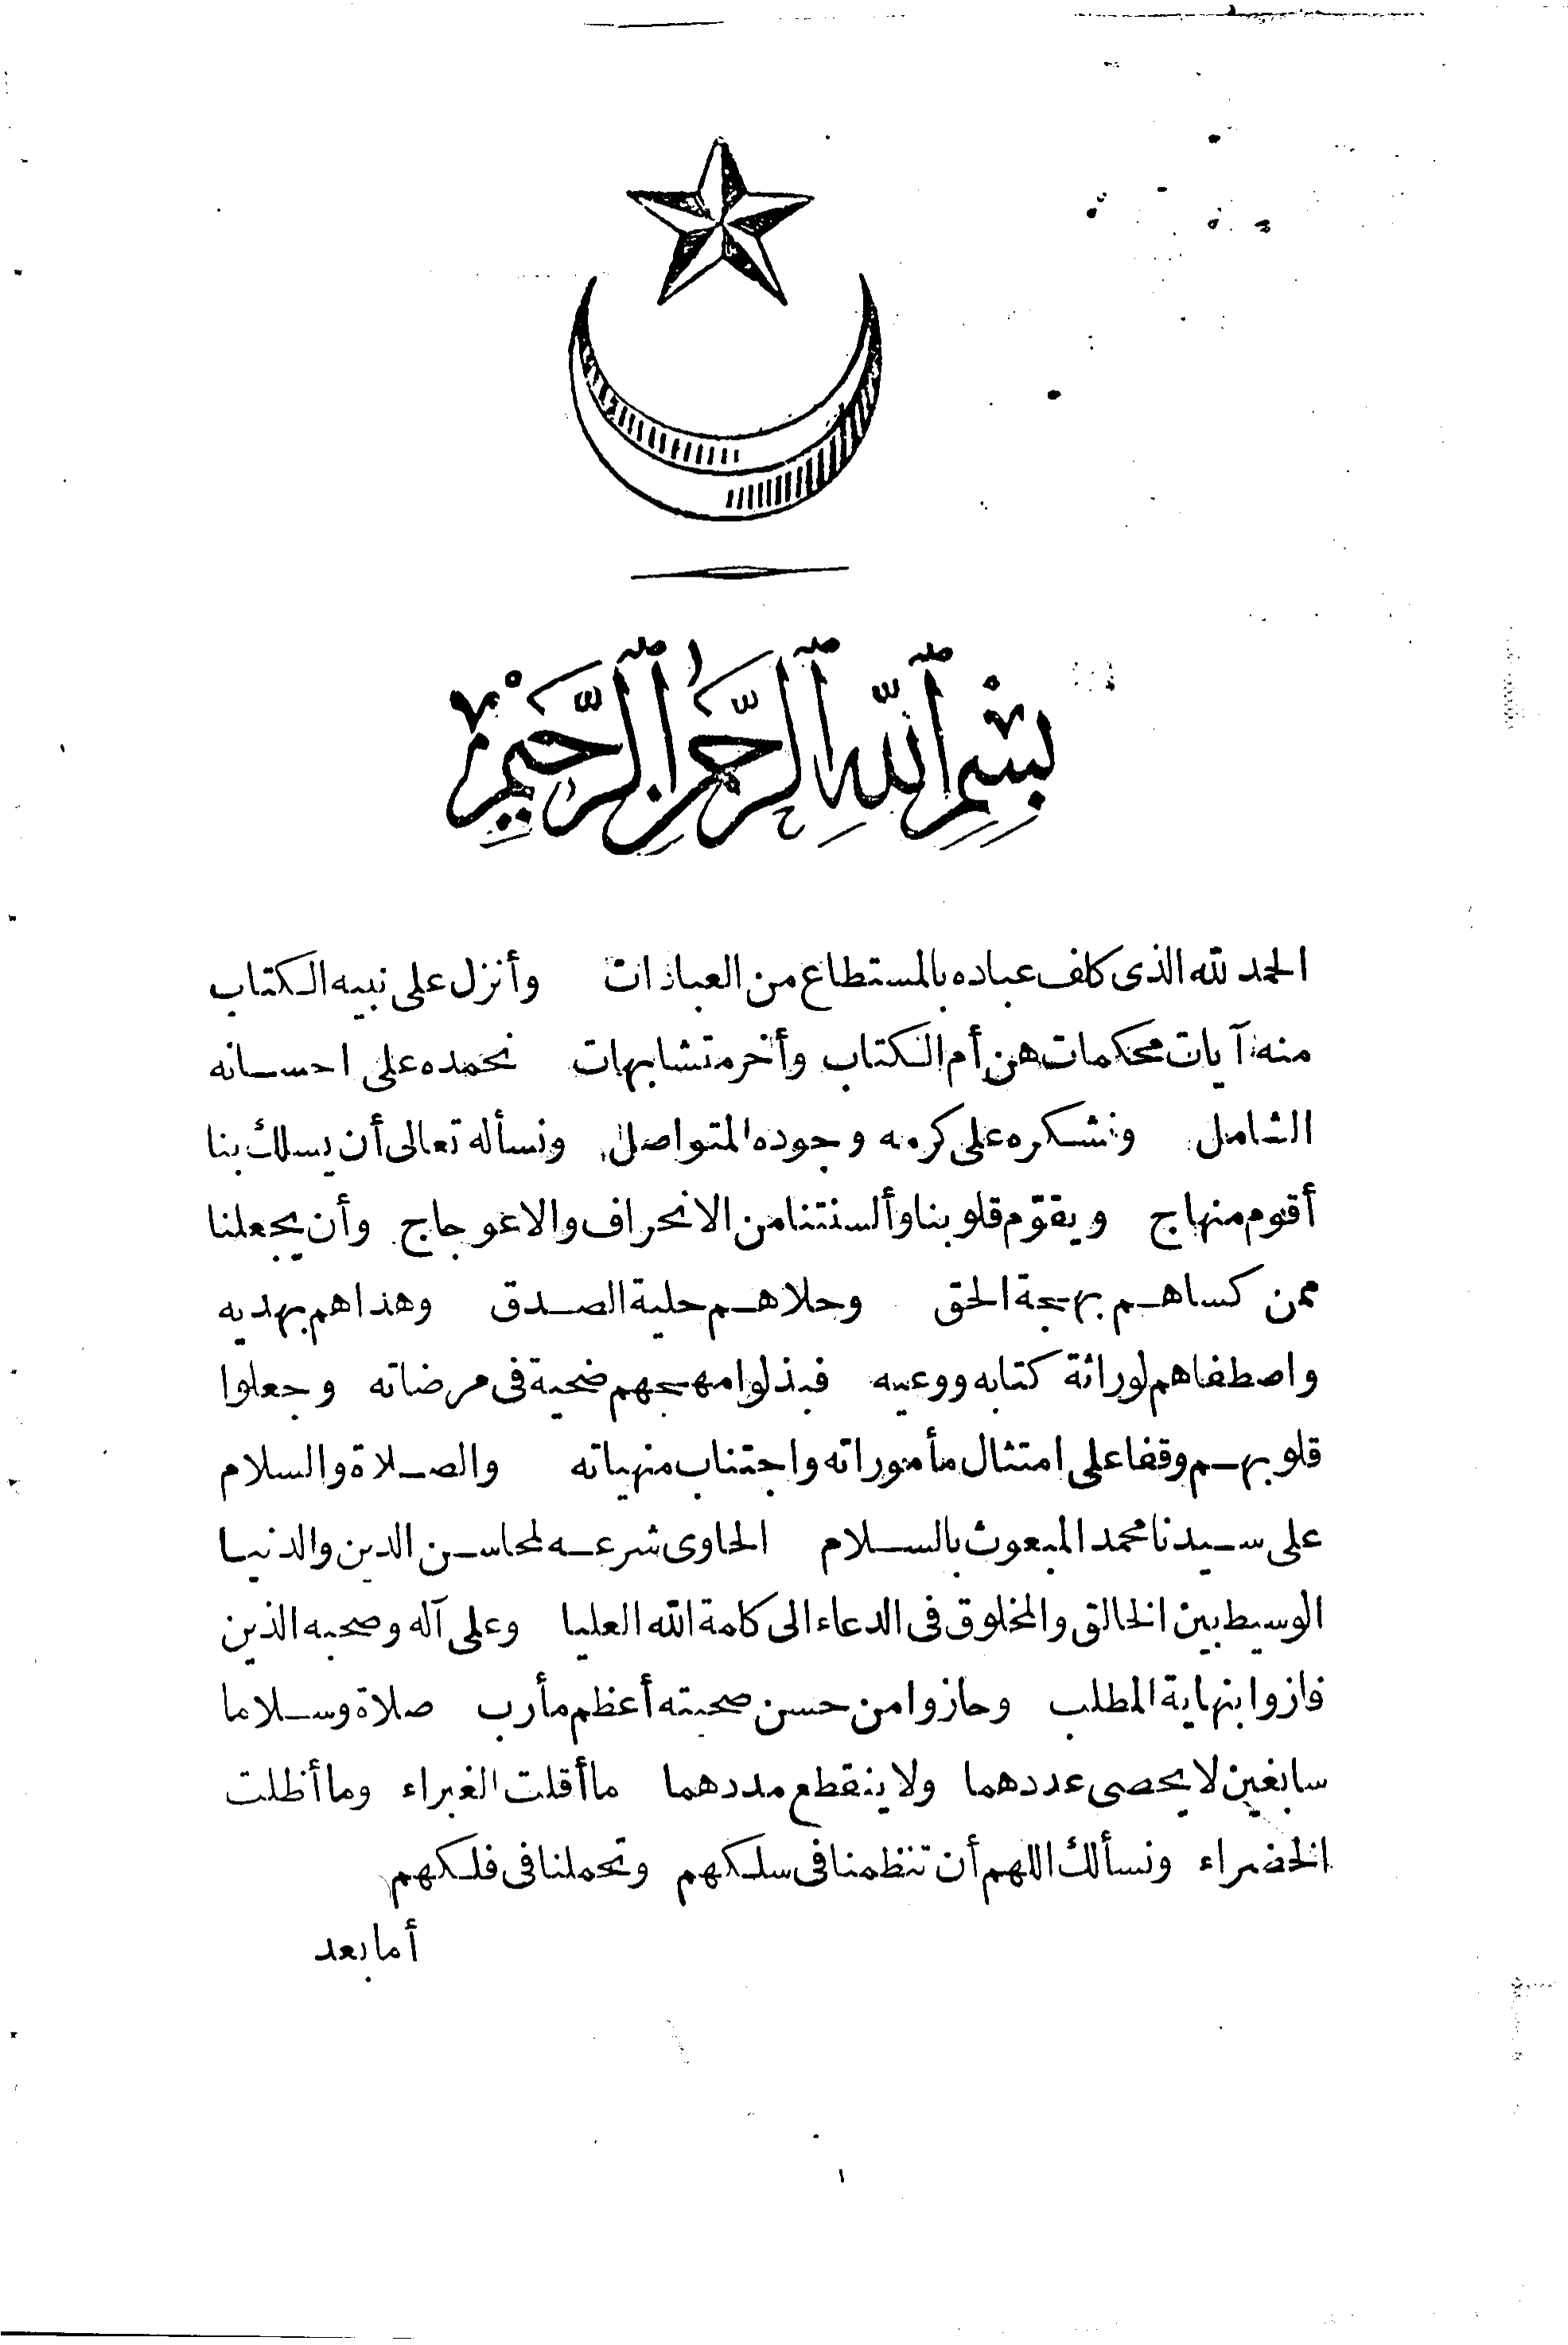 بِسْمِ ٱللَّهِ ٱلرَّحْمَٰنِ ٱلرَّحِيمِ
الحمد لله الذى كلف عباده بالمستطاع من العبادات وأنزل على نبيه الكتاب
منه آيات محكمات هن أم الكتاب وأخر متشابهات نحمده على احسانه
الشامل ونشكره على كرمه وجوده المتواصل ونسأله تعالى أن يسلك بنا
أقوم منهاج ويقوّم قلوبنا وألسنتنا من الانحراف والاعوجاج وأن يجعلنا
ممن كساهم بهجة الحق وحلاهم حلية الصدق وهداهم بهديه
واصطفاهم لوراثة كتابه ووعيه فبذلوا مهجهم ضحية فى مرضاته وجعلوا
قلوبهم وقفا على امتثال مأموراته واجتناب منهياته والصلاة والسلام
على سيدنا محمد المبعوث بالسلام الحاوى شرعه لمحاسن الدين والدنيا
الوسيط بين الخالق والمخلوق فى الدعاء الى كلمة الله العليا وعلى آله وصحبه الذين
فازوا بنهاية المطلب وحازوا من حسن صحبته أعظم مأرب صلاة وسلاما
سابغين لا يحصى عددهما ولا ينقطع مددهما ما أقلت الغبراء وما أظلت
الخضراء ونسألك اللهم أن تنظمنا فى سلكهم وتحملنا فى فلكهم
أما بعد
١